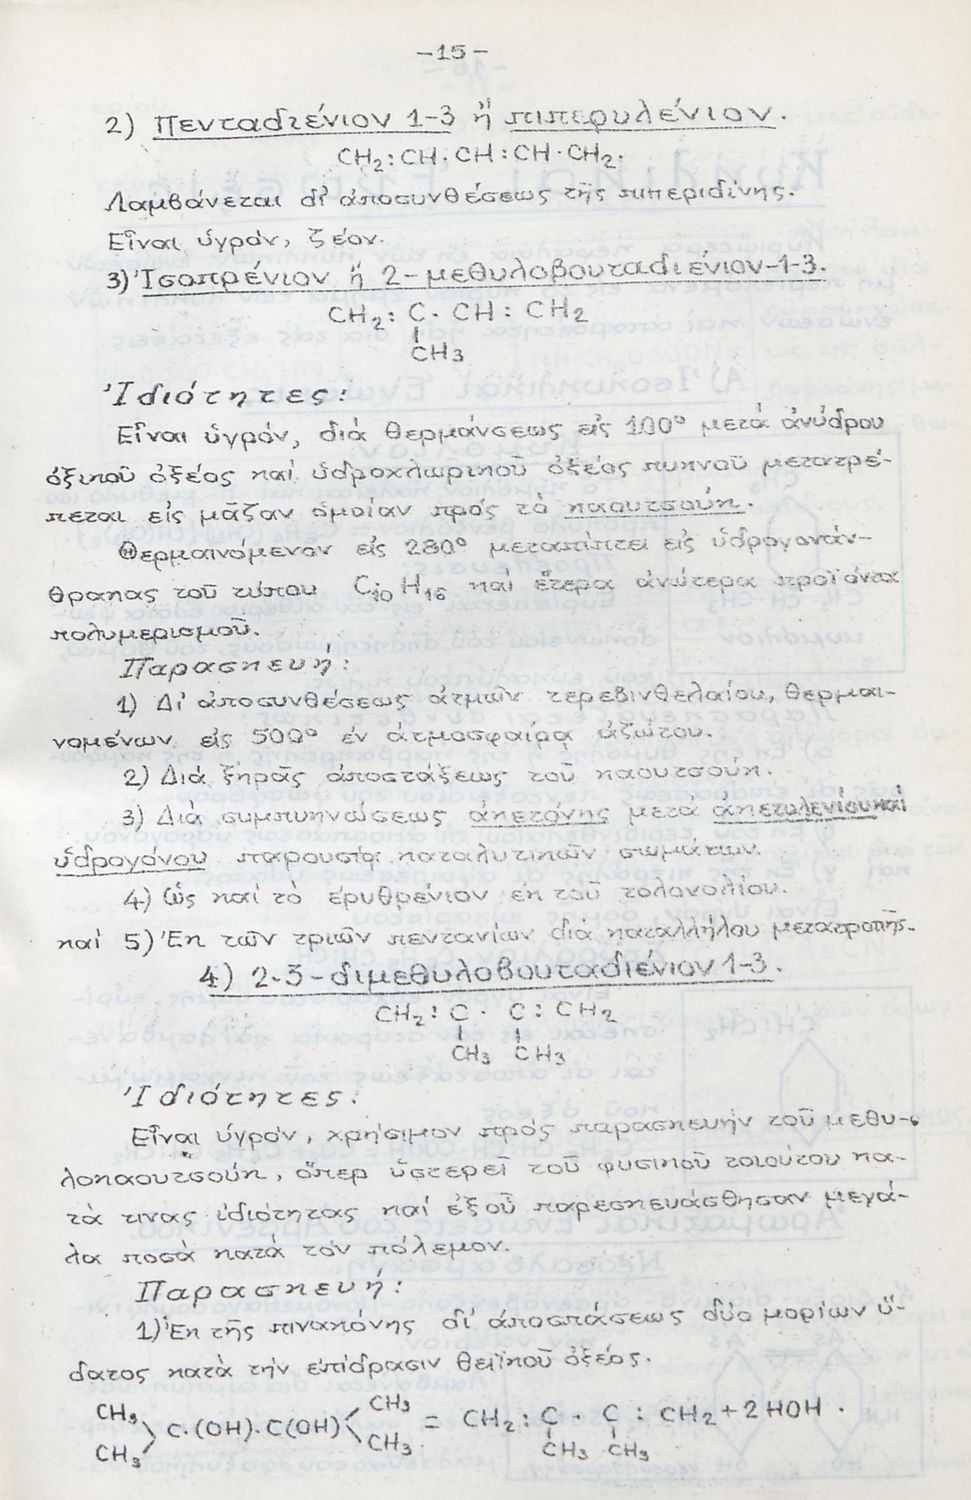 -15-
2) Πενταδιένιον 1-3 ἤ πιπερυλένιον.
CH₂:CH·CH:CH·CH₂.
Λαμβάνεται δι' ἀποσυνθέσεως τῆς πιπεριδίνης.
Εἶναι ὑγρόν, ζέον.
3) Ἰσοπρένιον ἤ 2-μεθυλοβουταδιένιον-1-3.
CH₂: C · CH : CH₂
CH₃
Ἰδιότητες:
Εἶναι ὑγρόν, διά θερμάνσεως εἰς 100° μετά ἀνύδρου
ὀξικοῦ ὀξέος καί ὑδροχλωρικοῦ ὀξέος πυκνοῦ μετατρέ-
πεται εἰς μᾶζαν ὁμοίαν πρός τό καουτσούκ.
Θερμαινόμενον εἰς 280° μεταπίπτει εἰς ὑδρογονάν-
θρακας τοῦ τύπου C₁₀H₁₆ καί ἕτερα ἀνώτερα προϊόντα
πολυμερισμοῦ.
Παρασκευή:
1) Δι' ἀποσυνθέσεως ἀτμῶν τερεβινθελαίου, θερμαι-
νομένων εἰς 500° ἐν ἀτμοσφαίρᾳ ἀζώτου.
2) Διά ξηρᾶς ἀποστάξεως τοῦ καουτσούκ.
3) Διά συμπυκνώσεως ἀκετόνης μετά ἀκετυλενίου καί
ὑδρογόνου παρουσίᾳ καταλυτικῶν σωμάτων.
4) Ὡς καί τό ἐρυθρένιον ἐκ τοῦ
καί 5) Ἐκ τῶν τριῶν πεντανίων διά καταλλήλου μετατροπῆς.
4) 2-3-διμεθυλοβουταδιένιον 1-3.
CH₂: C · C : CH₂
CH₃ CH₃
Ἰδιότητες:
Εἶναι ὑγρόν, χρήσιμον πρός παρασκευήν τοῦ μεθυ-
λοκαουτσούκ, ὅπερ ὑστερεῖ τοῦ φυσικοῦ τοιούτου κα-
τά τινας ἰδιότητας καί ἐξ οὗ παρεσκευάσθησαν μεγά-
λα ποσά κατά τόν πόλεμον.
Παρασκευή:
1) Ἐκ τῆς πινακόνης δι' ἀποσπάσεως δύο μορίων ὕ-
δατος κατά τήν ἐπίδρασιν θειϊκοῦ ὀξέος.
CH₃ CH₃
C·(OH)·C(OH) = CH₂: C · C : CH₂ + 2HOH.
CH₃ CH₃ CH₃ CH₃